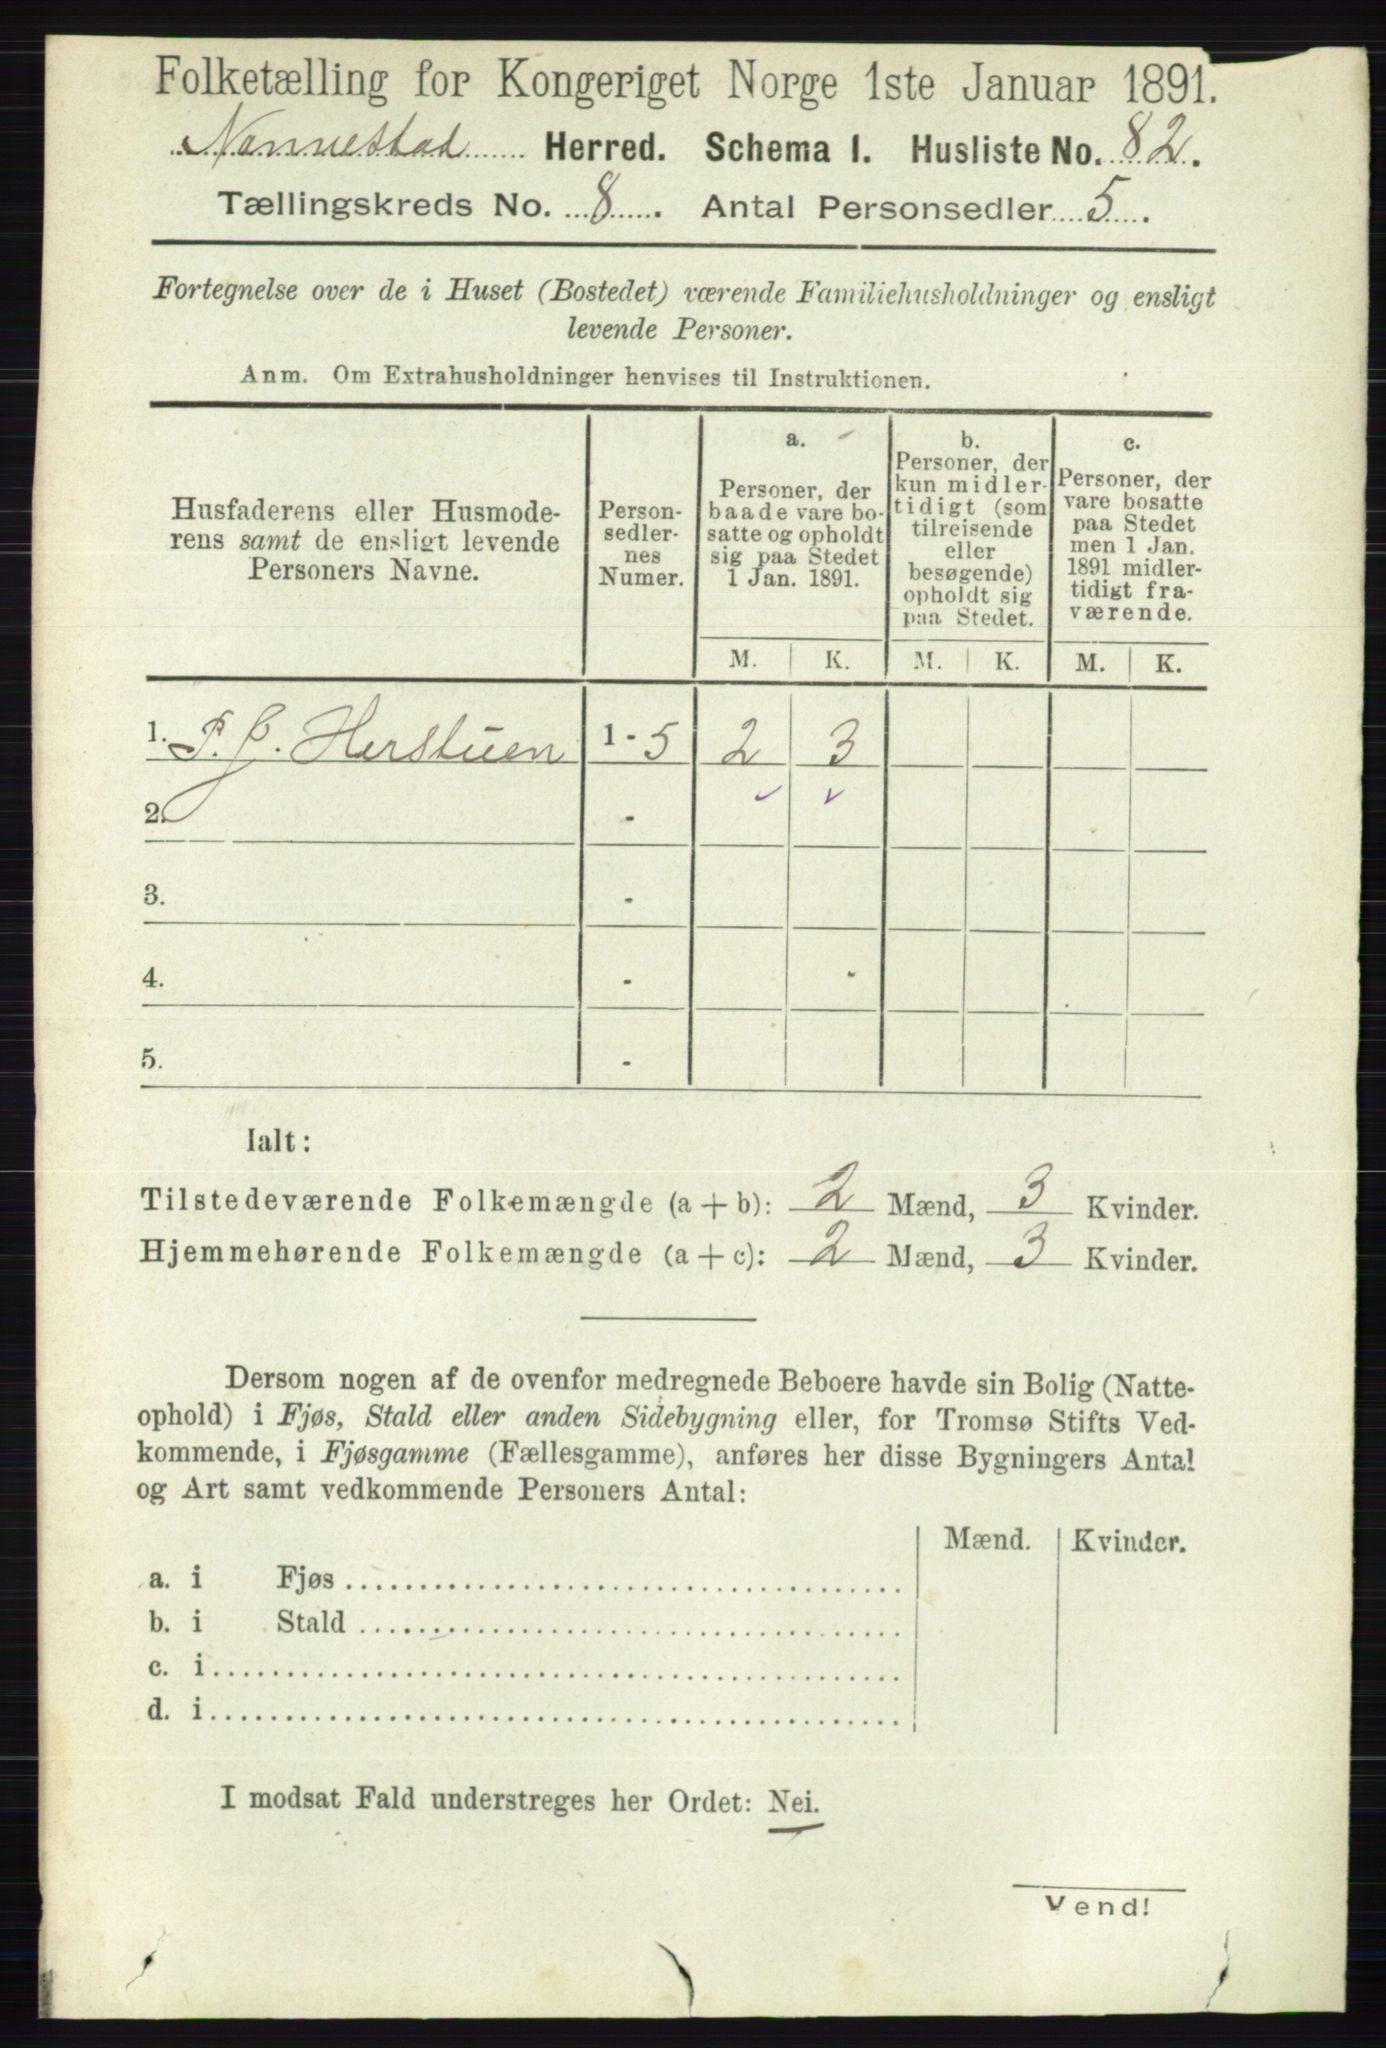 Folketælling for Kongeriget Norge 1ste Januar 1891.
Nannestad Herred. Schema I. Husliste No. 82.
Tællingskreds No. 8. Antal Personsedler 5.
Fortegnelse over de i Huset (Bostedet) værende Familiehusholdninger og ensligt
levende Personer.
Anm. Om Extrahusholdninger henvises til Instruktionen.
Husfaderens eller Husmode-
rens samt de ensligt levende
Personers Navne.
Person-
sedler-
nes
Numer.
a.
Personer, der
baade vare bo-
satte og opholdt
sig paa Stedet
1 Jan. 1891.
b.
Personer, der
kun midler-
tidigt (som
tilreisende
eller
besøgende)
opholdt sig
paa Stedet.
c.
Personer, der
vare bosatte
paa Stedet
men 1 Jan.
1891 midler-
tidigt fra-
værende.
M. K. M. K. M. K.
1. P. J. Herstuen 1 - 5 2 3
2. -
3. -
4. -
5. -
Ialt:
Tilstedeværende Folkemængde (a + b): 2 Mænd, 3 Kvinder.
Hjemmehørende Folkemængde (a + c): 2 Mænd, 3 Kvinder.
Dersom nogen af de ovenfor medregnede Beboere havde sin Bolig (Natte-
ophold) i Fjøs, Stald eller anden Sidebygning eller, for Tromsø Stifts Ved-
kommende, i Fjøsgamme (Fællesgamme), anføres her disse Bygningers Antal
og Art samt vedkommende Personers Antal:
Mænd. Kvinder.
a. i Fjøs
b. i Stald
c. i
d. i
I modsat Fald understreges her Ordet: Nei.
Vend!